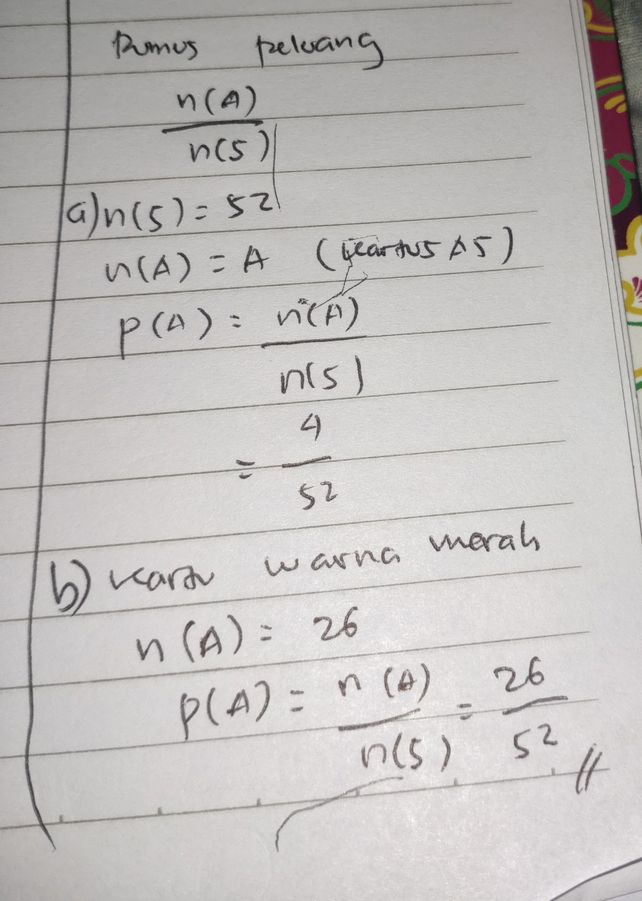 Rumus peluang
n(A)
n(S)
a) n(S) = 52
n(A) = 4 (kartus AS)
P(A) = n(A)
n(S)
= 4
52
b) kartu warna merah
n(A) = 26
P(A) = n(A) = 26
n(S) 52 //